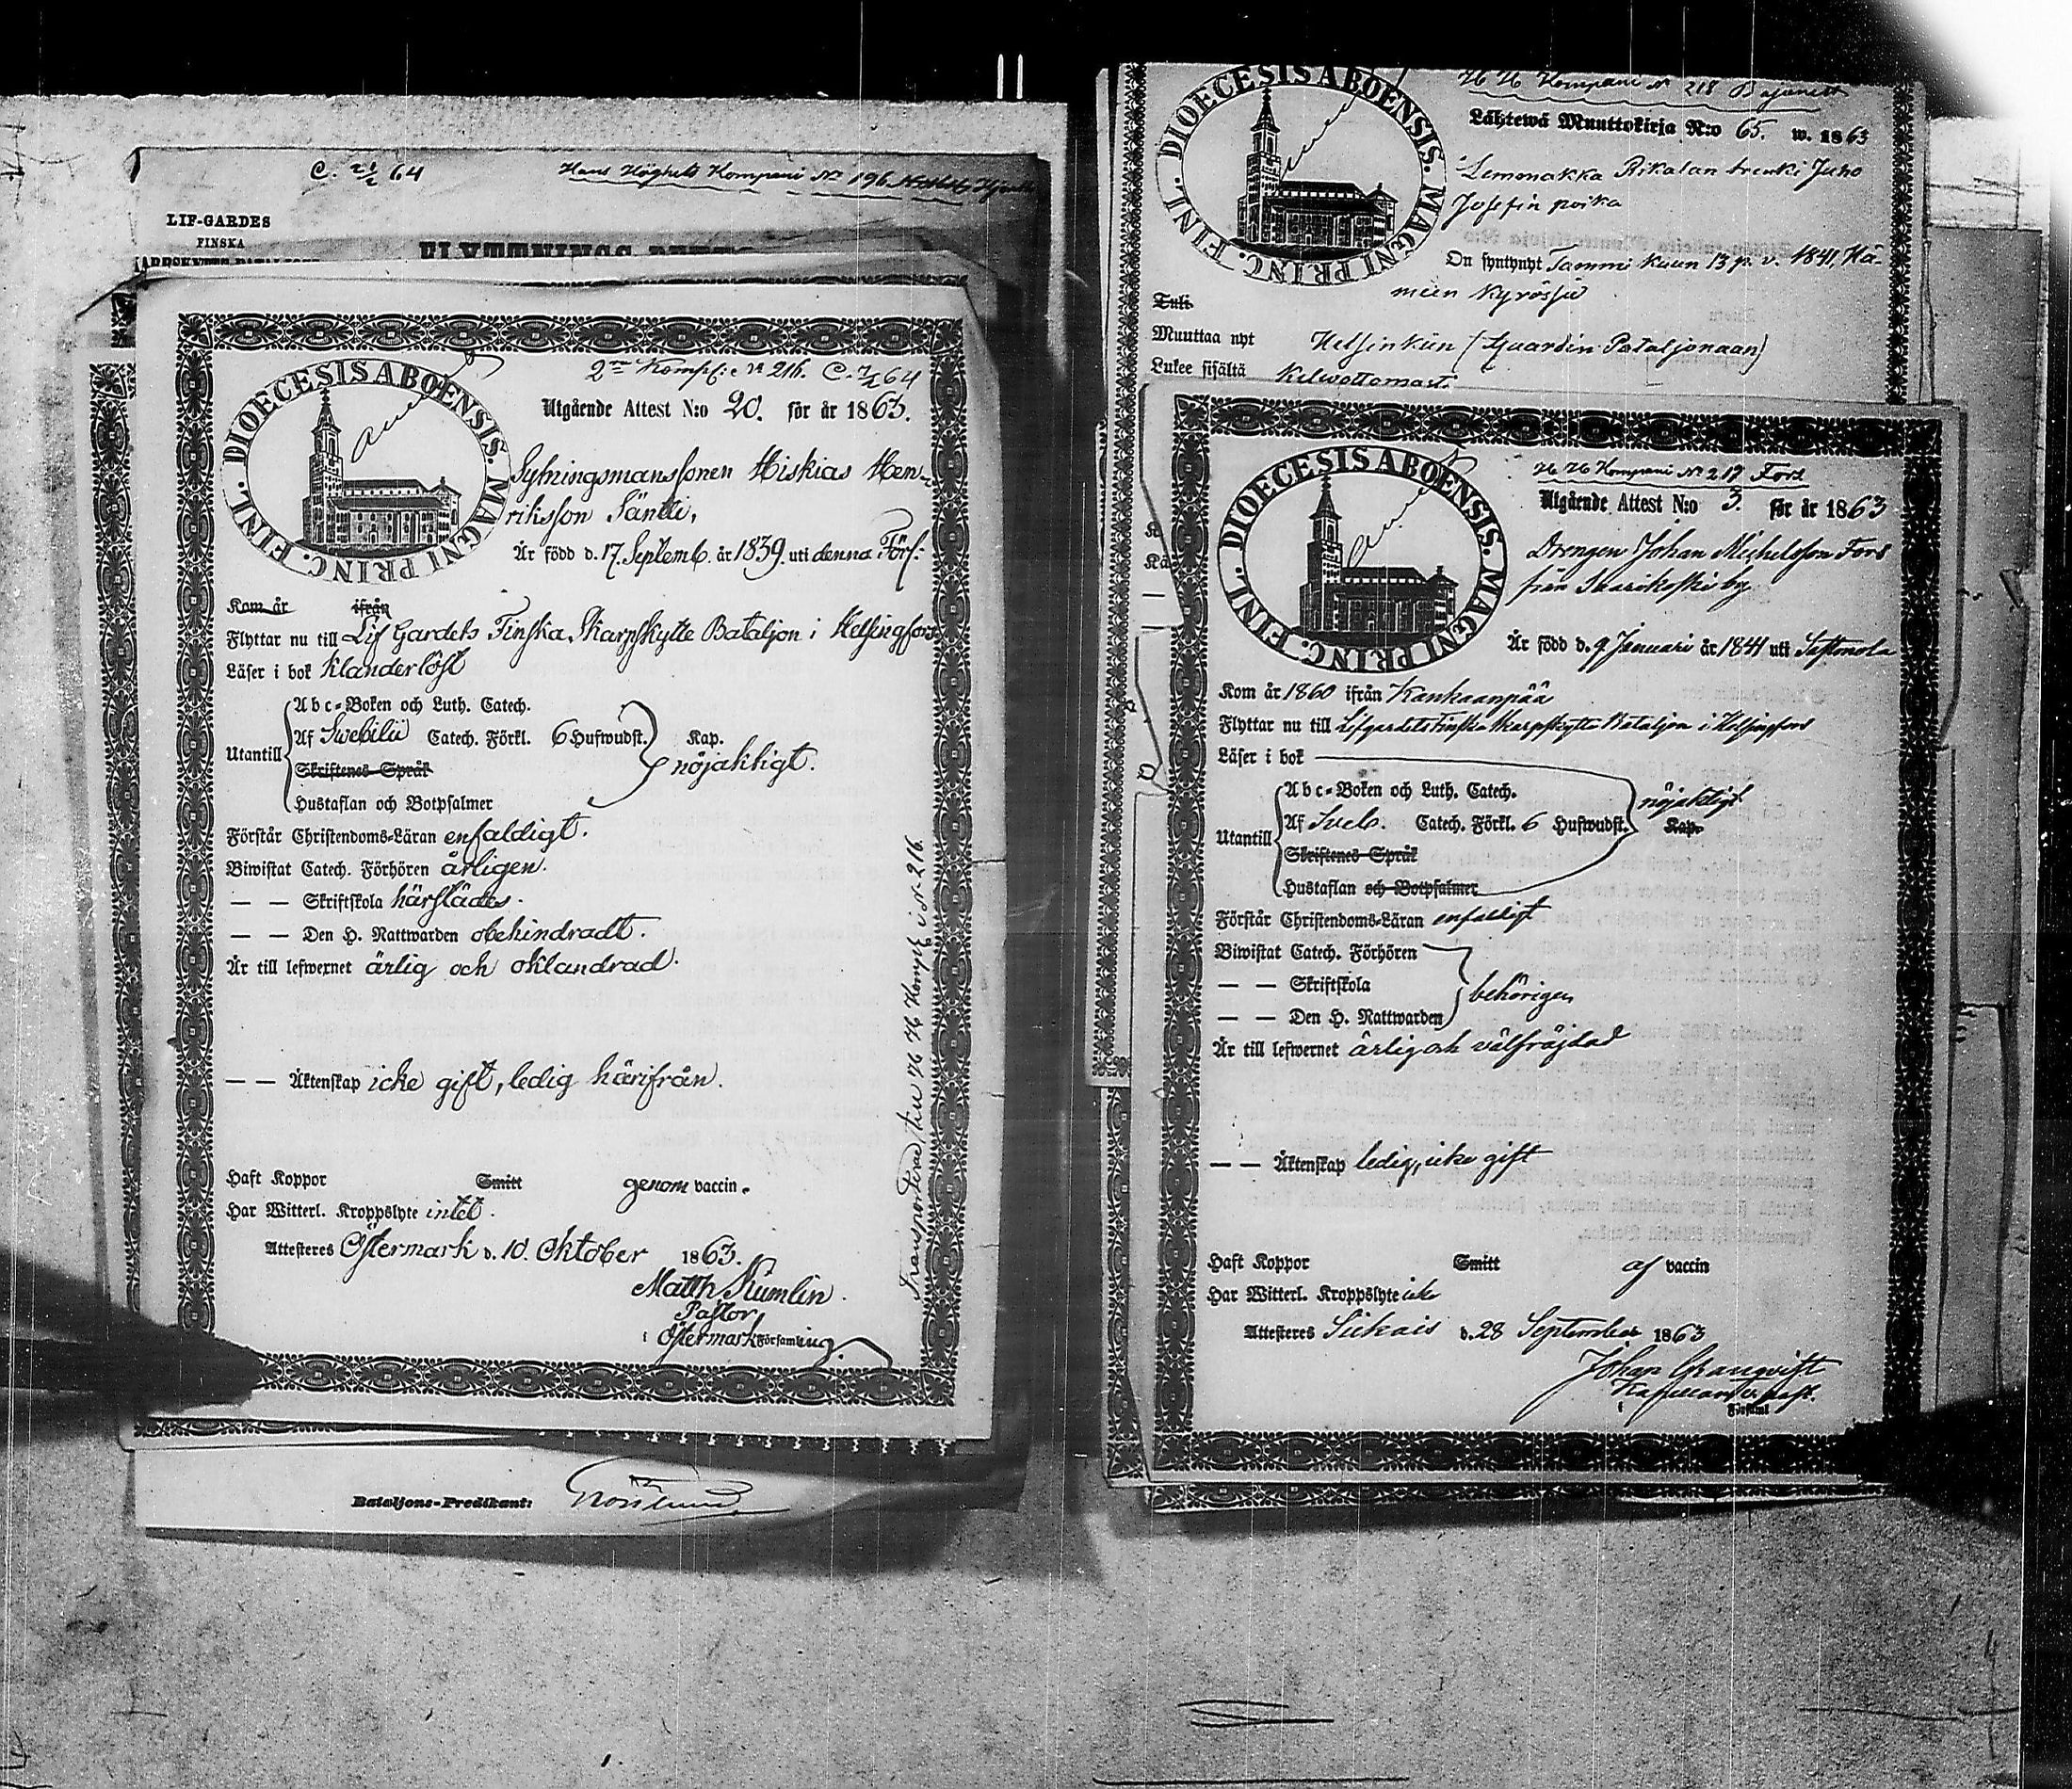 C. 21/2 64
Hans Höghets Kompani No 196
LIF-GARDES
FINSKA
FLYTTNINGS-BETYG
DIOECESIS ABOENSIS. MAGNI PRINC. FINL.
2ra Komp:e No 216. C. 7/2 64
Utgående Attest N:o 20. för år 1863.
Sytningsmanssonen Hiskias Hen-
riksson Säntti,
Är född d. 17. Septemb. år 1839. uti denna Förs:
Kom år ifrån
Flyttar nu till Lif Gardets Finska Skarpskytte Bataljon i Helsingfors
Läser i bok klanderlöst
Abc-Boken och Luth. Catech.
Utantill Af Svebilii Catech. Förkl. 6 Hufwudst. Kap.
nöjaktligt.
Skriftenes Språk
Hustaflan och Botpsalmer
Förstår Christendoms-Läran enfaldigt.
Biwistat Catech. Förhören årligen.
— — Skriftskola härstädes.
— — Den H. Nattwarden obehindradt.
Är till lefwernet ärlig och oklandrad.
— — Äktenskap icke gift, ledig härifrån.
Haft Koppor Smitt genom vaccin.
Har Witterl. Kroppslyte intet.
Attesteres Östermark d. 10. Oktober 1863.
Matth Kumlin
Pastor
i Östermark Församling.
Transporterad till H H Komp. i No 216.
Bataljons-Predikant:
H H Kompani No 218 Bajonett
DIOECESIS ABOENSIS. MAGNI PRINC. FINL.
Lähtewä Muuttokirja N:o 65. w. 1863
Lemmakka Rikalan trenki Juho
Josefin poika
On syntynyt Tammi kuun 13 p. v. 1841, Hä-
meen Kyrössä
Tuli
Muuttaa nyt Helsinkiin (Guardin Pataljonaan)
Lukee sisältä Kelwottomast.
DIOECESIS ABOENSIS. MAGNI PRINC. FINL.
H H Kompani No 217 Fors
Utgående Attest N:o 3. för år 1863
Drengen Johan Michelsson Fors
från Saarikoski by
Är född d. 9 Januari år 1841 uti Sastmola
Kom år 1860 ifrån Kankaanpää
Flyttar nu till Lifgardets Finska Skarpskytte Bataljon i Helsingfors
Läser i bok
Abc-Boken och Luth. Catech.
nöjaktligt
Utantill Af Sveb. Catech. Förkl. 6 Hufwudst. Kap.
Skriftenes Språk
Hustaflan och Botpsalmer
Förstår Christendoms-Läran enfalligt
Biwistat Catech. Förhören
— — Skriftskola
behörigen
— — Den H. Nattwarden
Är till lefwernet ärlig och välfräjdad
— — Äktenskap ledig, icke gift
Haft Koppor Smitt af vaccin
Har Witterl. Kroppslyte icke
Attesteres Siikais d. 28 September 1863
Johan Granqvist
Kapellan o. past.
i Församl